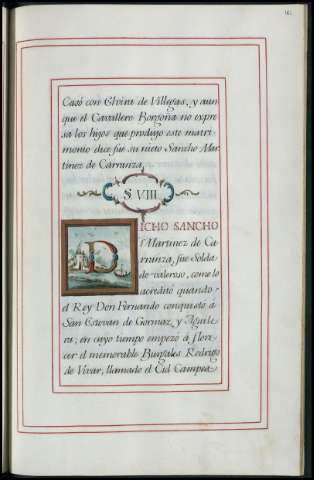 Casó con Elvira de Villegas, y aun
que el Cavallero Borgoña no expre
sa los hijos que produjo este matri
monio dice fue su nieto Sancho Mar
tinez de Carranza.
§ VIII
DICHO SANCHO
Martinez de Ca
rranza, fue Solda
do valeroso, como lo
acreditó quando
el Rey Don Fernando conquistó à
San Estevan de Gormaz, y Aguile
ra; en cuyo tiempo empezó á flore
cer el memorable Burgales Rodrigo
de Vivar, llamado el Cid Campea